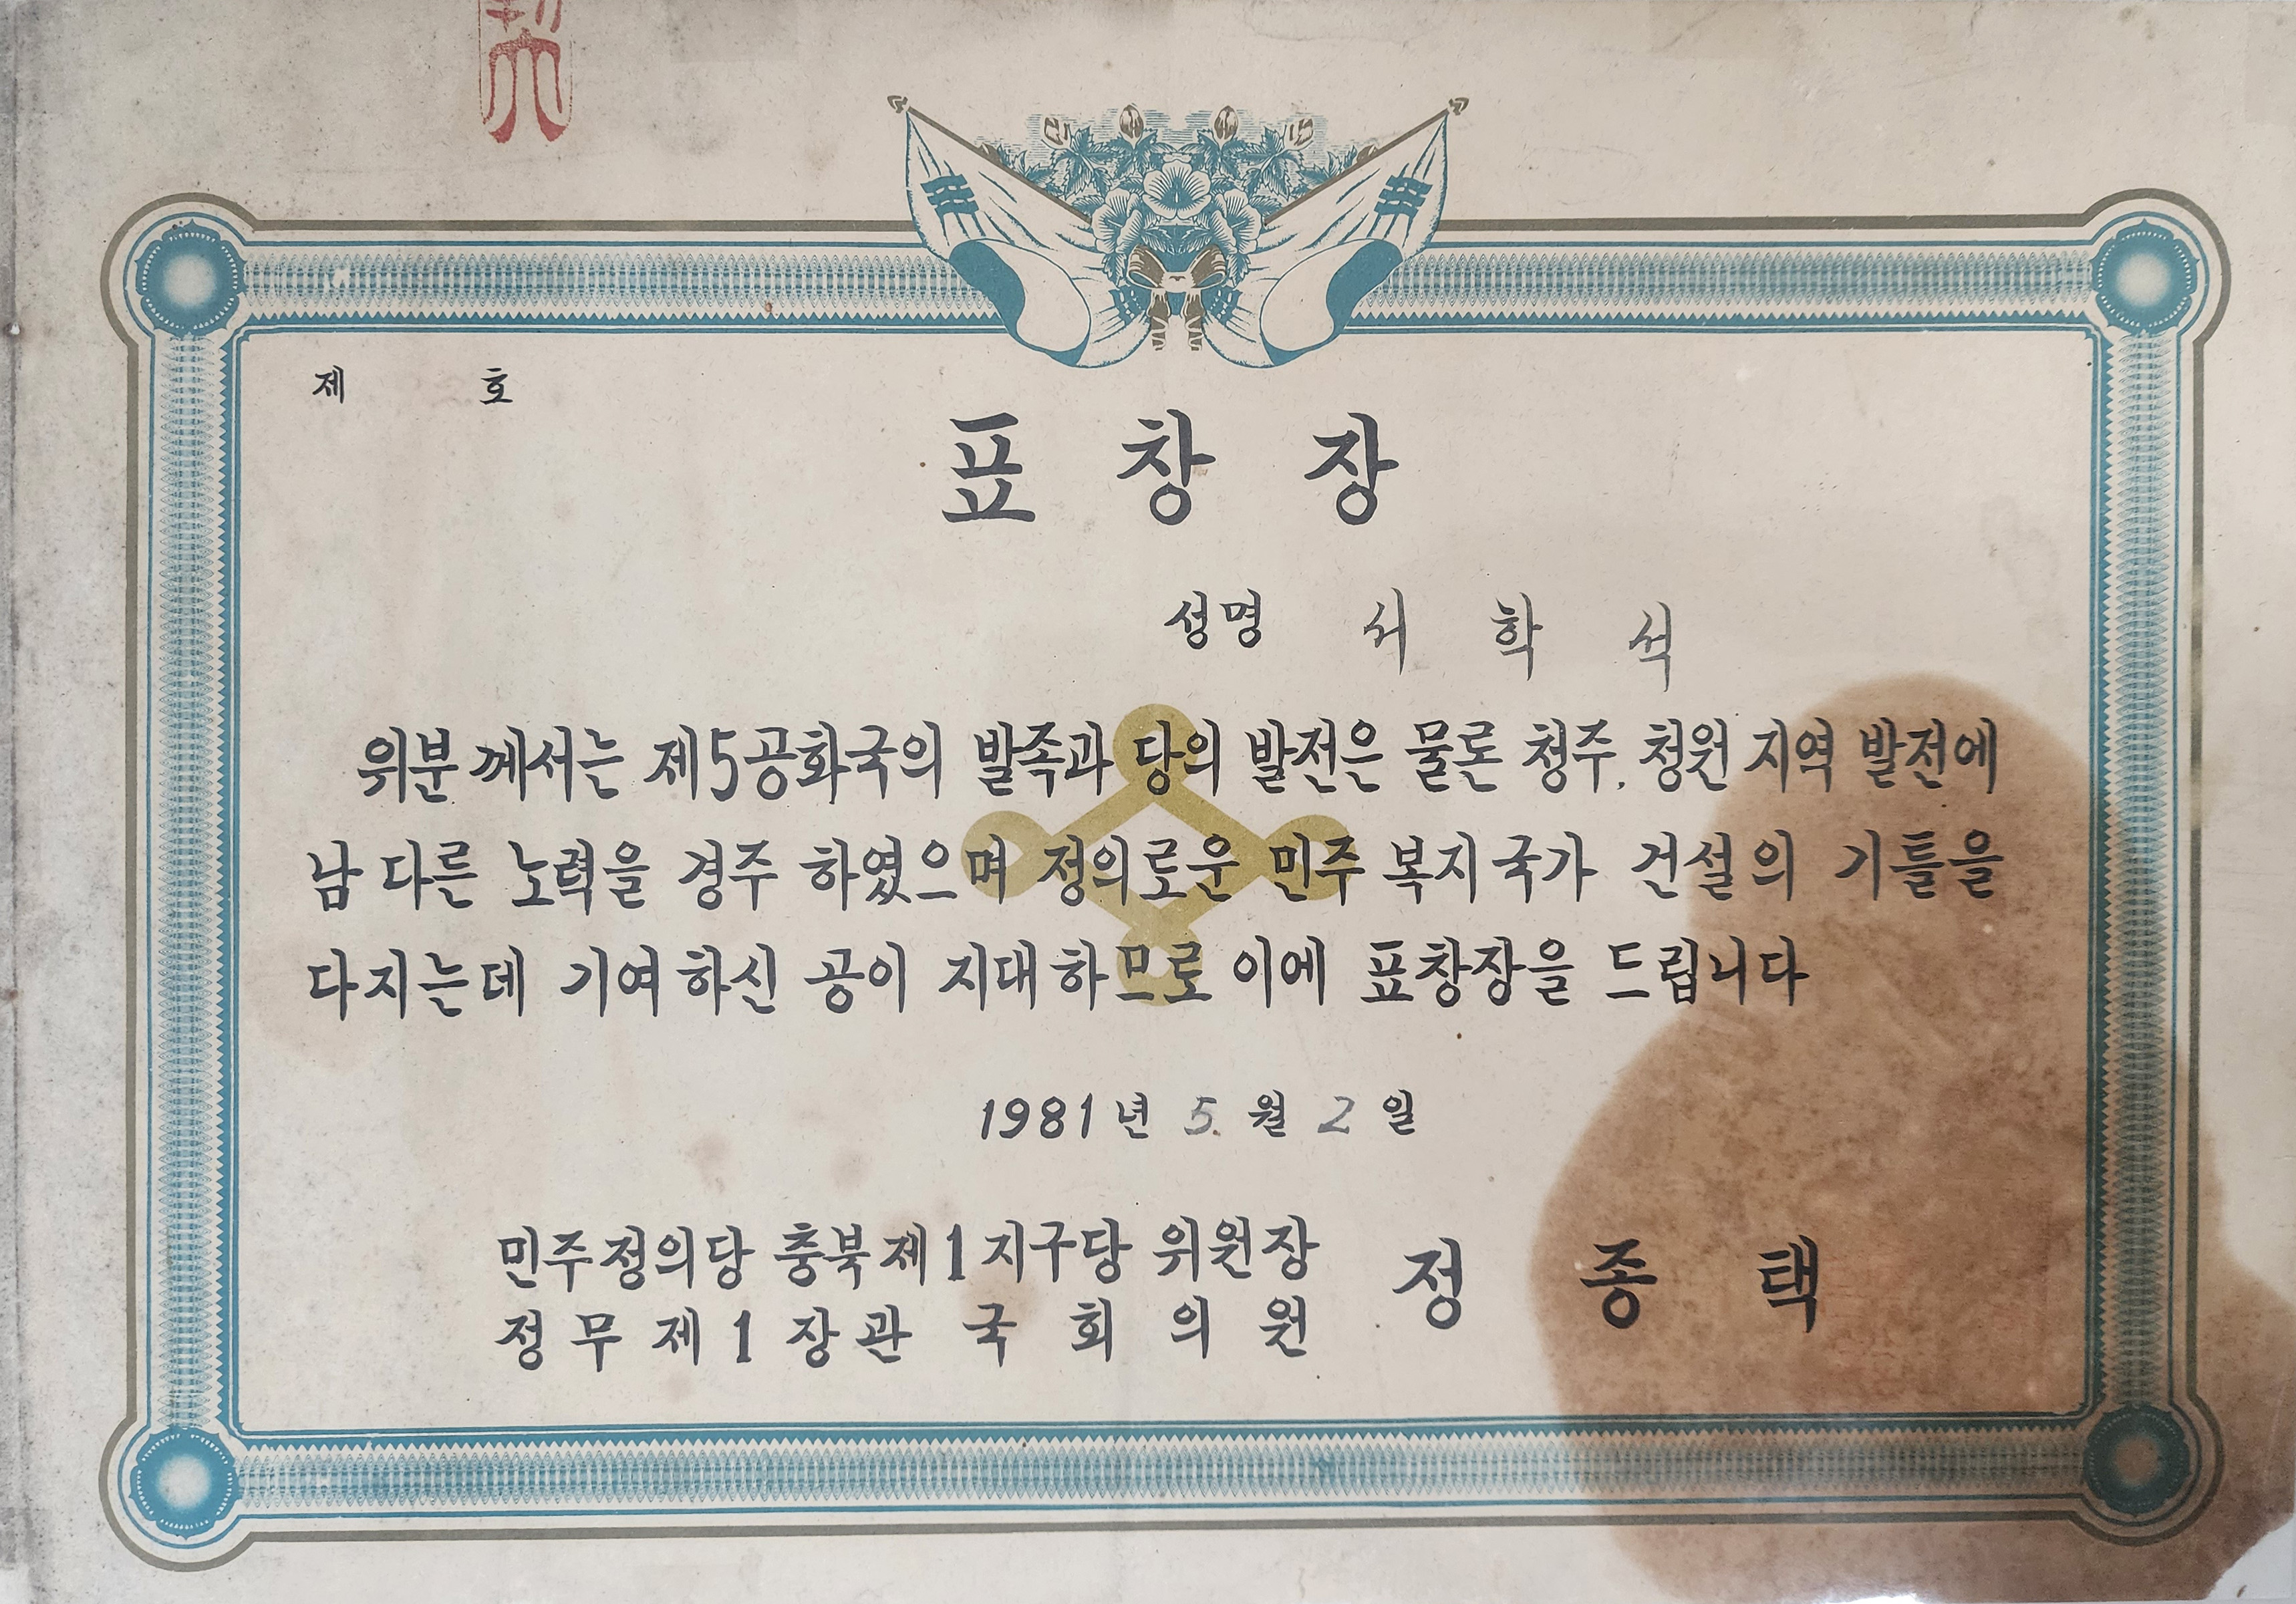 제 호
표 창 장
성명 서 학 석
위분께서는 제5공화국의 발족과 당의 발전은 물론 청주, 청원 지역 발전에
남다른 노력을 경주 하였으며 정의로운 민주 복지국가 건설의 기틀을
다지는데 기여하신 공이 지대하므로 이에 표창장을 드립니다
1981년 5월 2일
민주정의당 충북제1지구당 위원장 정 종 택
정무제1장관 국회의원